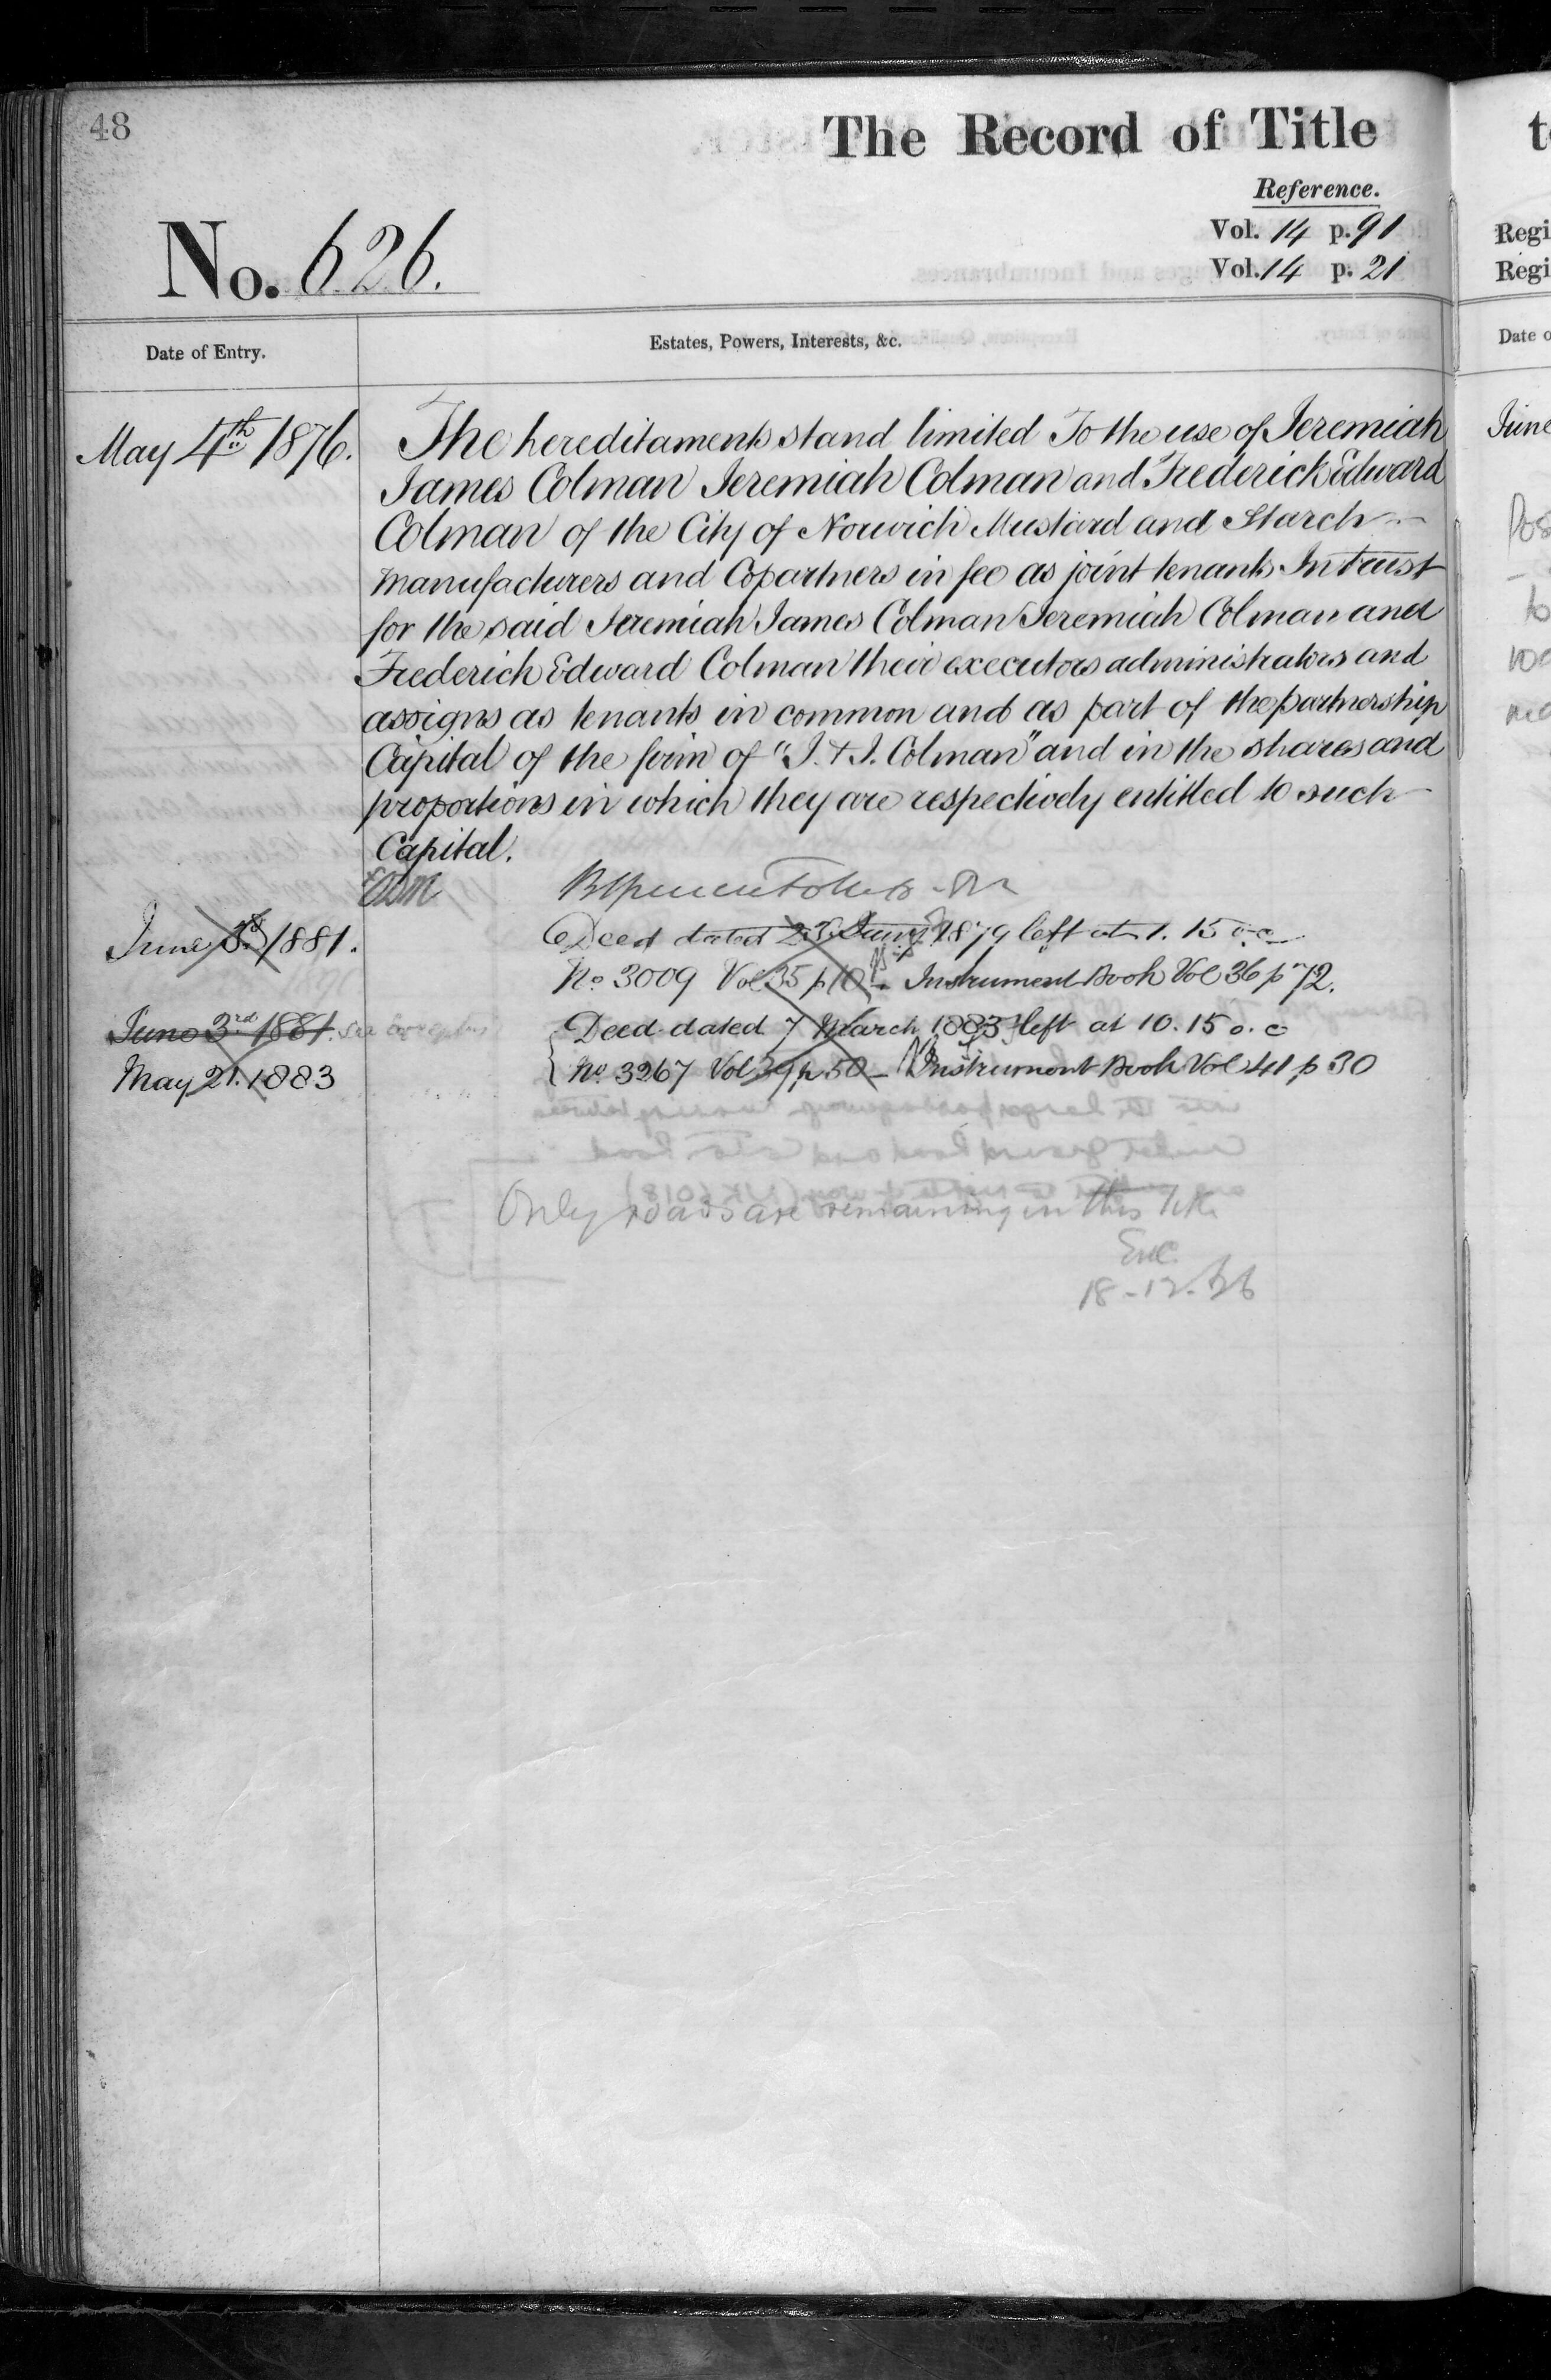 48
The Record of Title
Reference.
Vol. 14 p. 91
Vol. 14 p. 21
No. 626.
Date of Entry.
Estates, Powers, Interests, &c.
May 4th 1876.
The hereditaments stand limited To the use of Jeremiah
James Colman Jeremiah Colman and Frederick Edward
Colman of the City of Norwich Mustard and Starch
Manufacturers and Copartners in fee as joint tenants In trust
for the said Jeremiah James Colman Jeremiah Colman and
Frederick Edward Colman their executors administrators and
assigns as tenants in common and as part of the partnership
Capital of the firm of "J. & J. Colman" and in the shares and
proportions in which they are respectively entitled to such
Capital.
June 3rd 1881.
Deed dated 1879 left at 1. 15 o.c
No 3009 Vol 35 p 10 - Instrument Book Vol 36 p 72.
June 3rd 1881. See
Deed dated 7 March 1883 left at 10. 15 o. c
May 21. 1883
No 3267 Vol 39 p 50 - Instrument Book Vol 41 p 30
Only roads are remaining in this title
18-12-
t
Regi
Regi
Date o
June
Pos
to